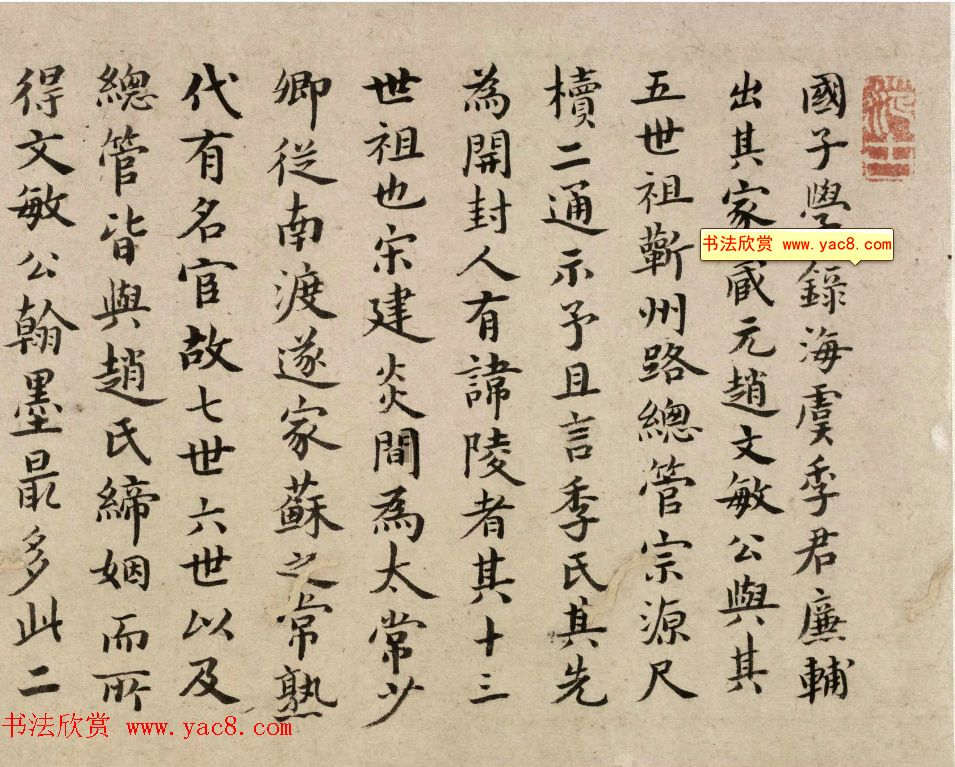 國子學錄海虞季君廉輔
出其家藏元趙文敏公與其
五世祖蘄州路總管宗源尺
牘二通示予且言季氏其先
為開封人有諱陵者其十三
世祖也宋建炎間為太常少
卿從南渡遂家蘇之常熟
代有名官故七世六世以及
總管皆與趙氏締姻而所
得文敏公翰墨最多此二
书法欣赏 www.yac8.com
书法欣赏 www.yac8.com